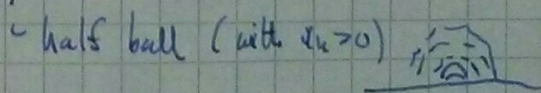 - half ball (with xₙ>0)